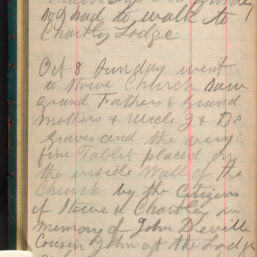 so I had to walk to
Chartley Lodge
Oct 8 Sunday went
to Stowe Church Saw
Grand Fathers & Grand
Mothers & Uncle J & D's
Graves and the very
fine Tablet placed on
the inside Wall of the
Church by the Citizens
of Stowe & Chartley in
Memory of John Deville
Cousin John at the Lodge